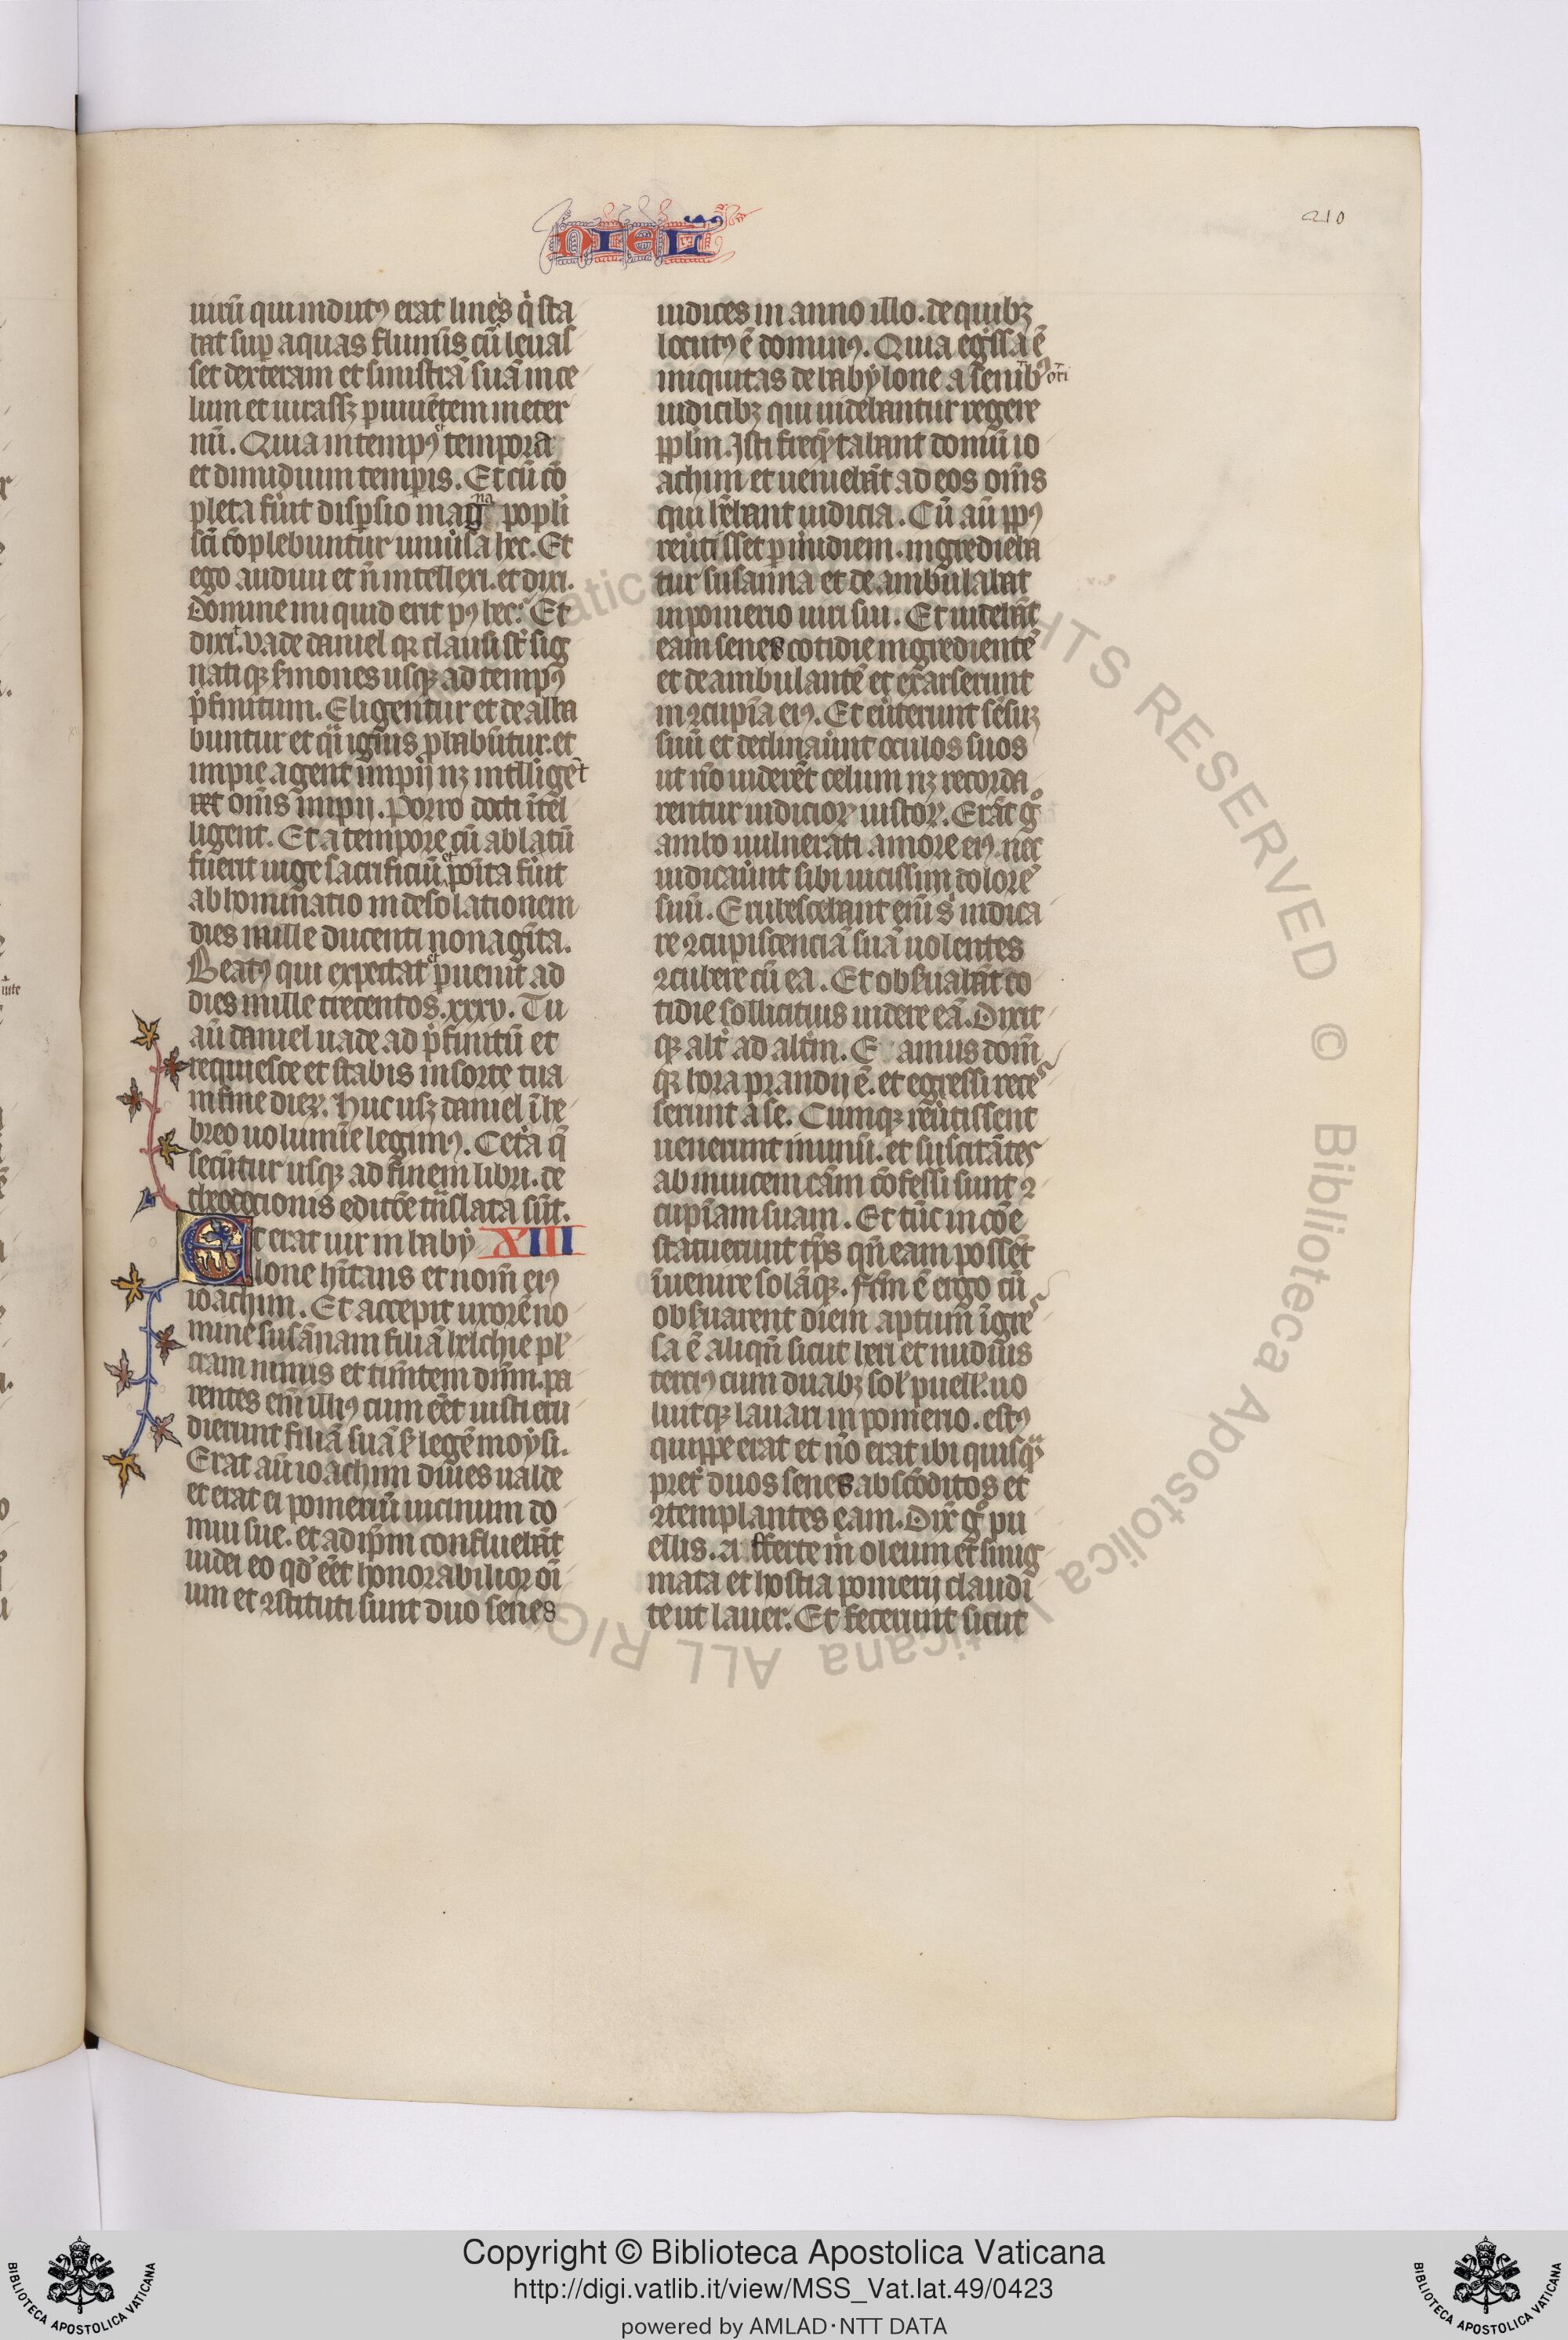 NIEL
210
uirū qui indutꝰ erat lineis q̇ sta
bat sup aquas flumīs cū leuas
set dexteram et sinistrā suā in ce
lum et iurassꝫ p uiuētem in eter
nū. Quia in tempꝰ et tempora
et dimidium tempis. Et cū cō
pleta fuīt dispsio magna popli
scī cōplebuntur uniūsa hec. Et
ego audiui et n̄ intellexi. et dixi.
domine mi quid erit pꝰ hec. Et
dixit. uade daniel qꝛ clausi sūt sig
natiqꝫ s̄mones usqꝫ ad tempꝰ
p̄finitum. Eligentur et dealba
buntur et q̈i ignis pbabūtur. et
impie agent impij nꝫ intelligēt
oms̄ impii. Porro docti ītel
ligent. Et a tempore cū ablatū
fuerit iuge sacrificiū et poīta fūit
abhominatio in desolationem
dies mille ducenti nonagīta.
Beatꝰ qui expectat et puenit ad
dies mille trecentos. xxxv. Tu
aū daniel uade ad p̄finitū et
requiesce et stabis in sorte tua
in fine dieꝝ. Huc usqꝫ daniel ī he
breo uolumīe legimꝰ. Cet̄a q̄
secūtur usqꝫ ad finem libri. de
theodotionis editōe tn̄slata sūt.
Et erat uir in baby XIII
lone hītans et nom̄ eiꝰ
ioachim. Et accepit uxorē no
mine susānam filiā helchie pl̓
cram nimis et tim̄tem dn̄m. pa
rentes em̄ illiꝰ cum eēt iusti eru
dierunt filiā suā s̄ legē moysi.
Erat aū ioachim diues ualde
et erat ei pomeriū uicinum do
mui sue. et ad ip̄m confluebāt
iudei eo qd̓ eēt honorabilior oī
um et ꝯstituti sunt duo senes
iudices in anno illo. de quibꝫ
locutꝰ ē dominꝰ. Quia egissa ē
iniquitas de babylone a senibꝰ
iudicibꝫ qui uidebantur regere
pplm̄. Isti freqn̄tabant domū io
achim et ueniebāt ad eos oms̄
qui hēbant iudicia. Cū aū ppꝰ
reūtisset p m̄idiem. ingredieba
tur susanna et deambulabat
in pomerio uiri sui. Et uidebāt
eam senes cotidie ingredientē
et deambulantē et exarserunt
in ꝯcupīa eiꝰ. Et eūterunt sēsuꝫ
suū et declinaūnt oculos suos
ut nō uiderēt celum nꝫ recorda
rentur iudicioꝝ iustoꝝ. Erāt gͦ
ambo uulnerati amore eiꝰ. nec
indicaūnt sibi uicissim dolorē
suū. Erubescebant em̄ s̄ indica
re ꝯcupiscenciā suā uolentes
ꝯcubere cū ea. Et obs̄uabāt co
tidie sollicitius uidere eā. Dixit
qꝫ alt̄ ad altm̄. E amus dom̄
qꝫ hora prandij ē. et egressi rece
serunt a se. Cumqꝫ reūtissent
uenerunt in unū. et suscitātes
ab inuicem cām cōfessi sunt ꝯ
cupīam suam. Et tūc in cōe
statuerunt tp̄s qn̄ eam possēt
īuenire solāqꝫ. Fcm̄ ē ergo cū
obs̄uarent diem aptum īgre
sa ē aliqn̄ sicut heri et nudius
terciꝰ cum duabꝫ sol̓ puell̓. uo
luitqꝫ lauari in pomerio. estꝰ
quippe erat et nō erat ibi quisq̈
pret̄ duos senes abscōditos et
ꝯtemplantes eam. Dix̄ gͦ pu
ellis. a fferte m̄ oleum et smig
mata et hostia pomerij claudi
te ut lauer. Et fecerunt sicut
Copyright © Biblioteca Apostolica Vaticana
http://digi.vatlib.it/view/MSS_Vat.lat.49/0423
powered by AMLAD·NTT DATA
BIBLIOTECA APOSTOLICA VATICANA
BIBLIOTECA APOSTOLICA VATICANA
ALL RIGHTS RESERVED © Biblioteca Apostolica Vaticana